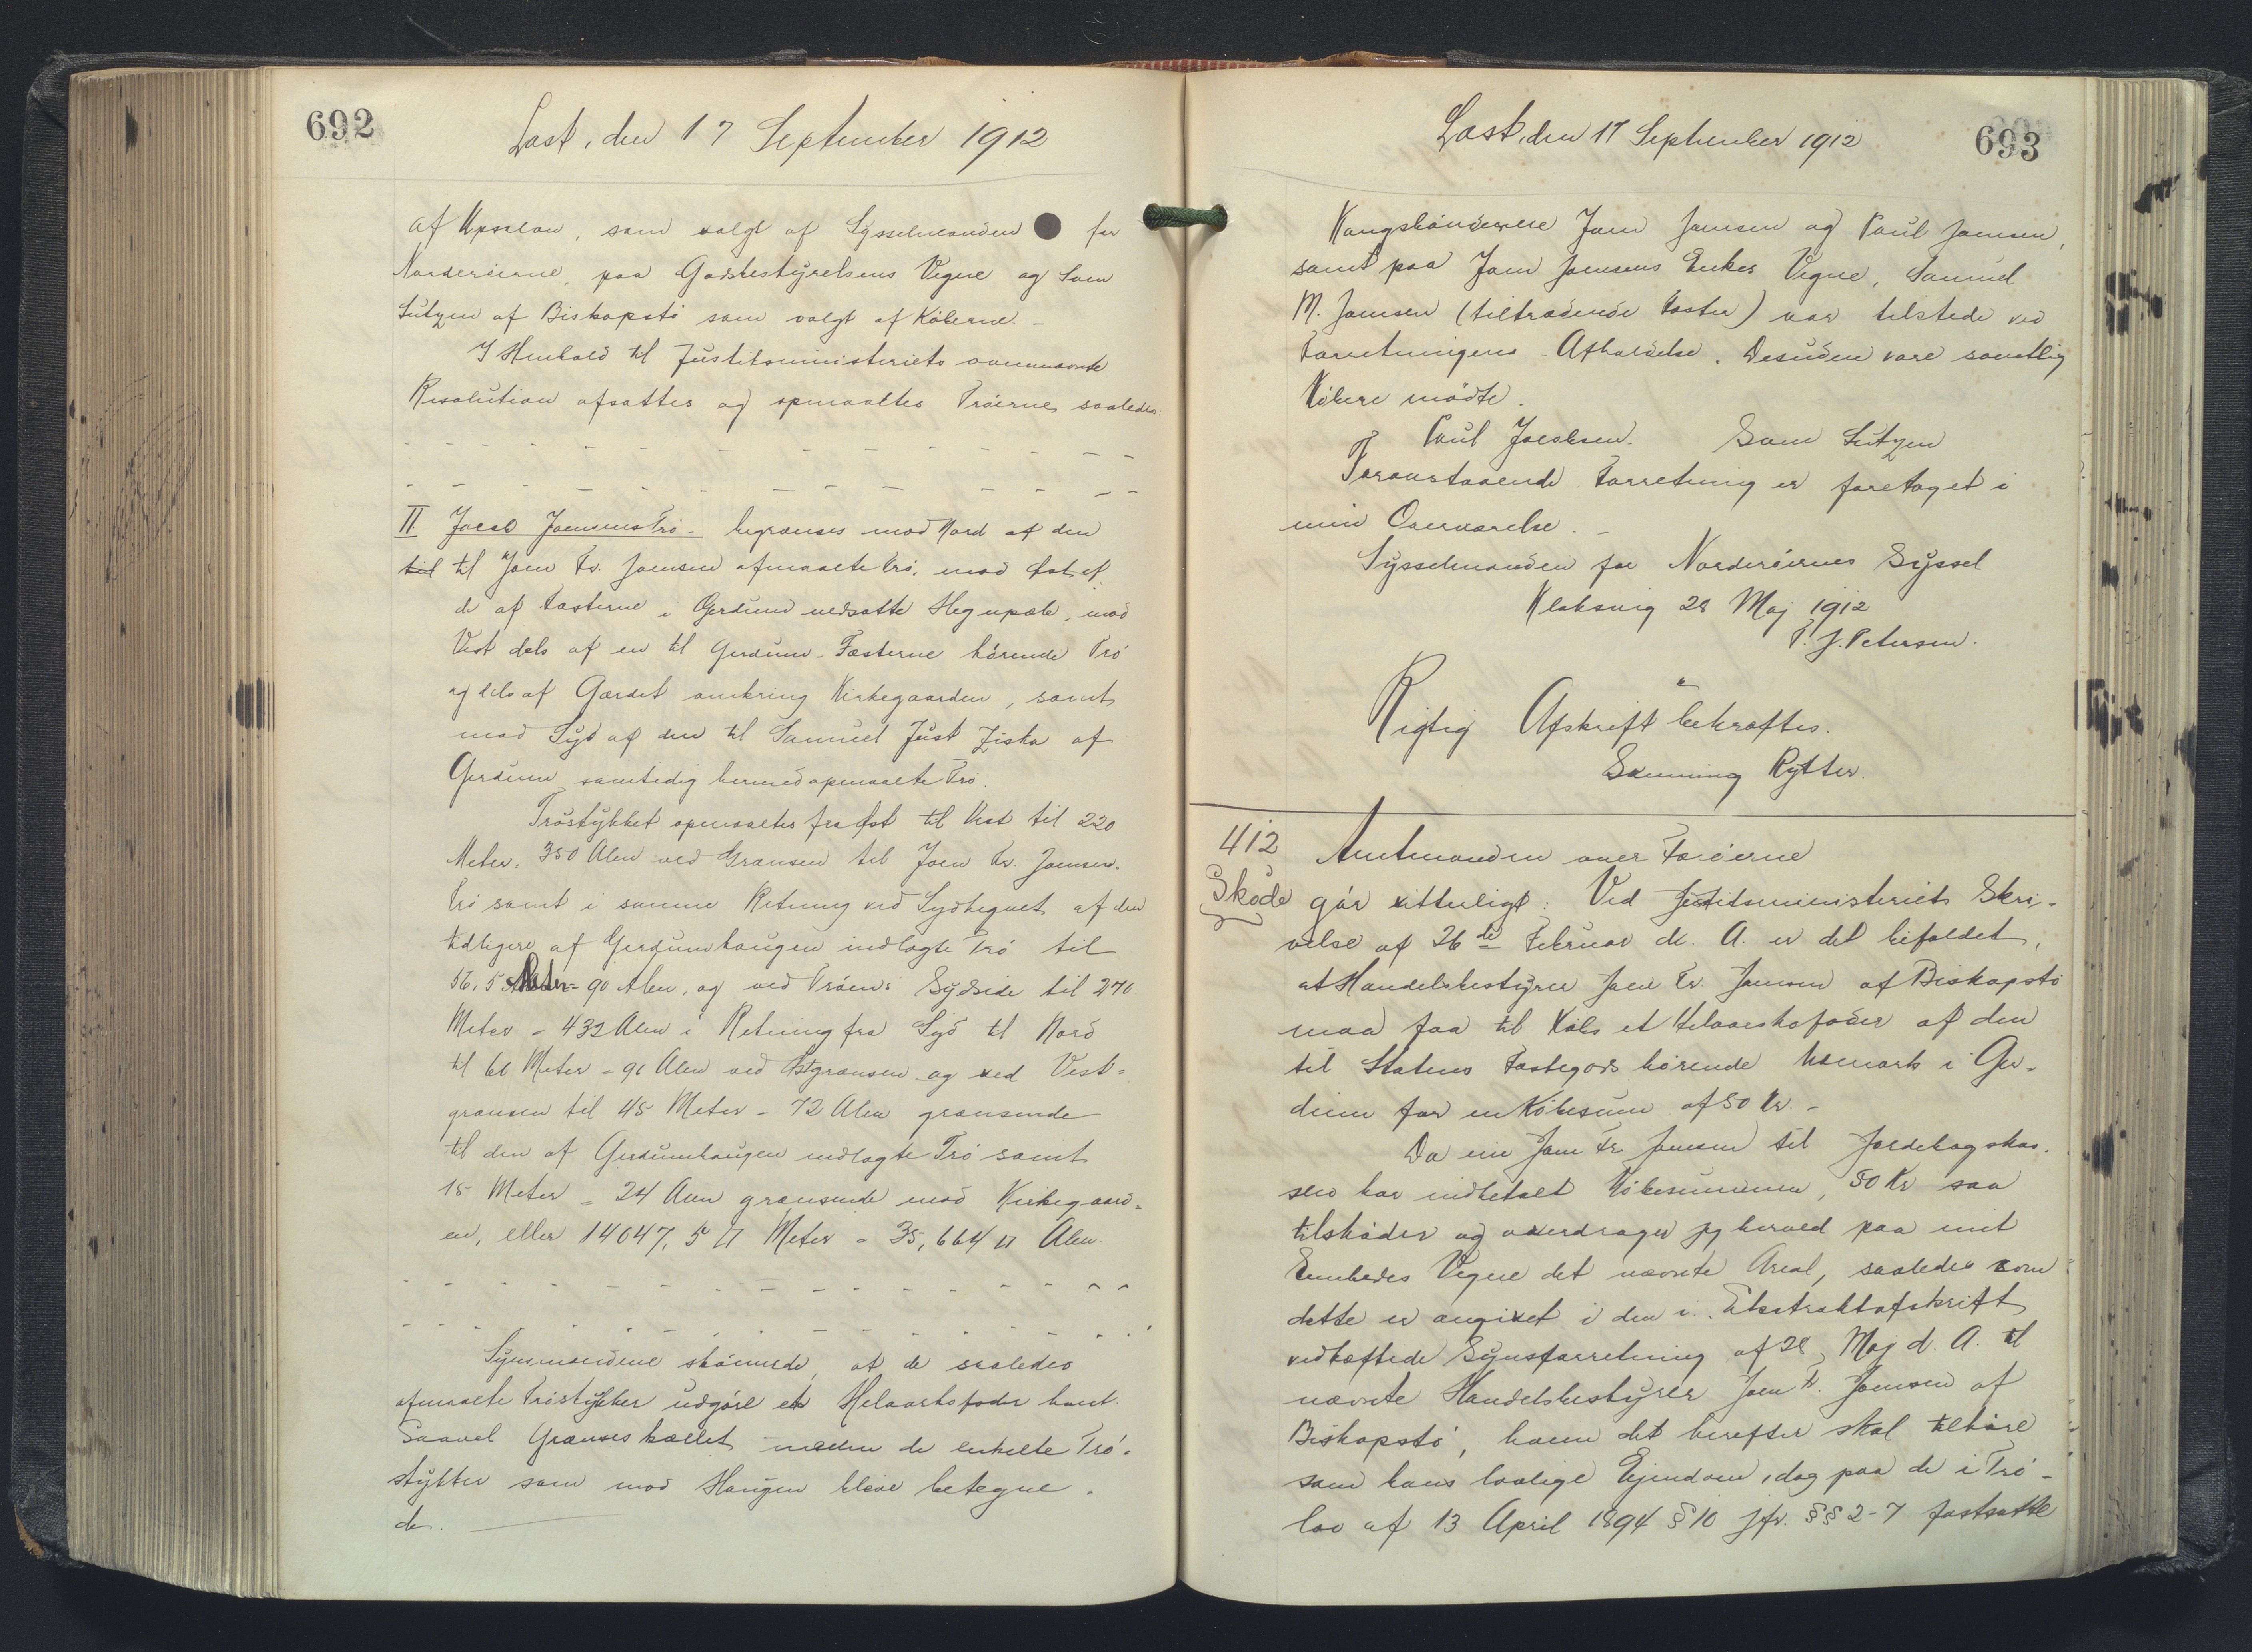 692
Læst, den 17 September 1912
af Upsalon, som valgt af Sysselmanden for
Norderöerne, paa Godsbestyrelsens Vegne og Sam
Lützen af Biskopstö som valgt af Köberne. -
I Henhold til Justitsministeriets ovennævnte
Resolution afsattes og opmaaltes Tröerne saaledes:
II Jacob Joensens Trö - begrænses mod Nord af den
til til Joen Fr. Joensen afmaalte Trö, mod Øst af
de af Fæsterne i Gerdum nedsatte Hegnspæle, mod
Vest dels af en til Gerdum-Fæsterne hörende Trö
og dels af Gærdet omkring Kirkegaarden, samt
mod Syd af den til Samuel Just Ziska af
Gerdum samtidig hermed opmaalte Trö.
Tröstykket opmaaltes fra Øst til Vest til 220
Meter = 350 Alen ved Grænsen til Joen Fr. Joensens
Trö samt i samme Retning ved Sydhegnet af den
tidligere af Gerdumhaugen indlagte Trö til
56,5 Meter = 90 Alen, og ved Tröens Sydside til 270
Meter = 432 Alen i Retning fra Syd til Nord
til 60 Meter = 96 Alen ved Østgrænsen og ved Vest=
grænsen til 45 Meter = 72 Alen grænsende
til den af Gerdumhaugen indlagte Trö samt
15 Meter = 24 Alen grænsende mod Kirkegaard=
en, eller 14047,5 □ Meter = 35,664 □ Alen
Synsmændene skönnede, at de saaledes
afmaalte Tröstykker udgöre et Helaarskofoder hvert.
Saavel Grænseskællet mellem de enkelte Trö=
stykker som mod Haugen bleve betegne=
de.
Læst, den 17 September 1912
693
Kongsbönderne Joen Joensen og Poul Joensen,
samt paa Joen Joensens Enkes Vegne, Samuel
M. Joensen (tiltrædende Fæster) var tilstede ved
Forretningens Afholdelse. Desuden vare samtlig
Köbere mödte.
Poul Jacobsen. Sam Lützen
Foranstaaende Forretning er foretaget i
min Overværelse. -
Sysselmanden for Norderöernes Syssel
Klaksvig 28 Maj 1912
P. J. Petersen.
Rigtig Afskrift bekræftes.
Sxmming Rytter.
412
Sköde
Amtmanden over Færöerne
gör vitterligt: Ved Justitsministeriets Skri-
velse af 26de Februar d. A. er det bifaldet,
at Handelsbestyrer Joen Fr. Joensen af Biskopstö
maa faa til Köbs et Helaarskofoder af den
til Statens Fæstegods hörende Udmark i Ger-
dum for en Köbesum af 50 Kr. -
Da nu Joen Fr. Joensen til Jordebogskas-
sen har indbetalt Köbesummen, 50 Kr saa
tilsköder og overdrager jeg herved paa mit
Embedes Vegne det nævnte Areal, saaledes som
dette er angivet i den i Ekstraktafskrift
vedhæftede Synsforretning af 28 Maj d. A. til
nævnte Handelsbestyrer Joen Fr. Joensen af
Biskopstö, hvem det herefter skal tilhöre
som hans lovlige Ejendom, dog paa de i Trö-
lov af 13 April 1894 § 10 jfr. §§ 2-7 fastsatte